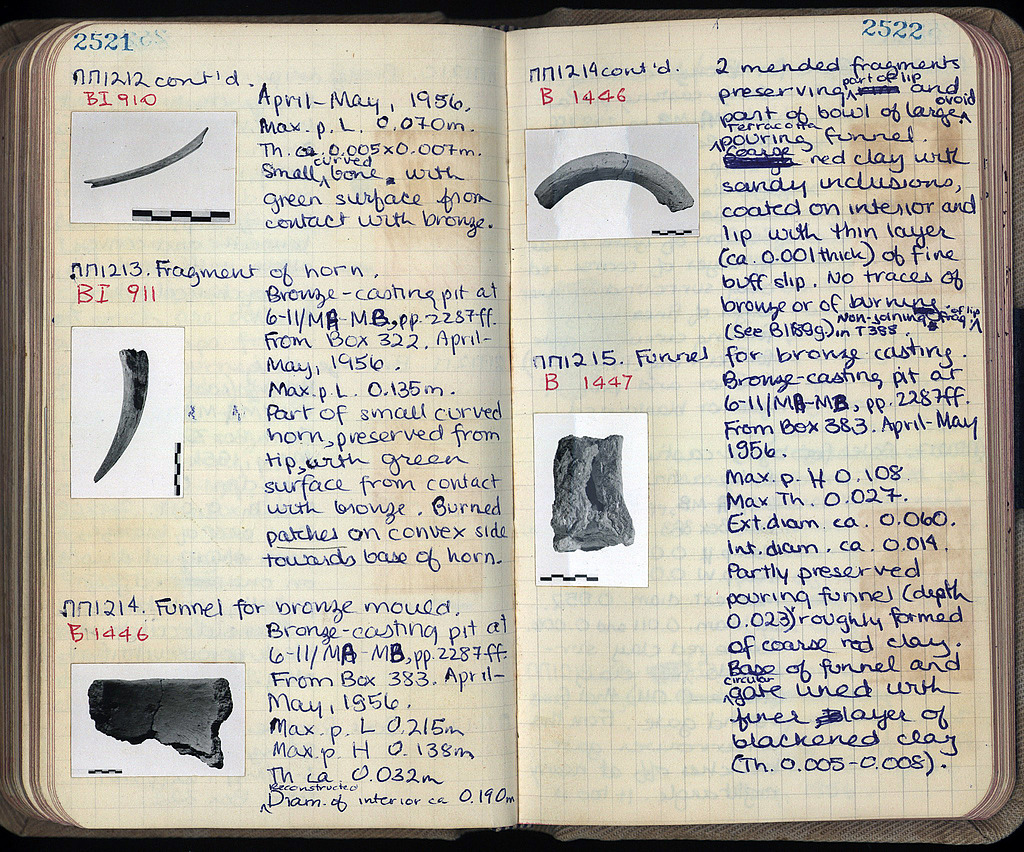 2521
ΠΠ1212 cont'd.
BI 910
April-May, 1956.
Max. p. L. 0.070m.
Th. ca. 0.005x0.007m.
Small curved bone, with
green surface from
contact with bronze.
ΠΠ1213. Fragment of horn.
BI 911
Bronze-casting pit at
6-11/MA-MB, pp. 2287ff.
From Box 322. April-
May, 1956.
Max. p. L. 0.135m.
Part of small curved
horn, preserved from
tip, with green
surface from contact
with bronze. Burned
patches on convex side
towards base of horn.
ΠΠ1214. Funnel for bronze mould.
B 1446
Bronze-casting pit at
6-11/MA-MB, pp. 2287ff.
From Box 383. April-
May, 1956.
Max. p. L 0.215m
Max. p. H 0.138m
Th ca. 0.032m
Reconstructed
Diam. of interior ca 0.190m
2522
ΠΠ1214 cont'd.
B 1446
2 mended fragments
preserving part of lip and
part of bowl of large ovoid
terracotta pouring funnel.
red clay with
sandy inclusions,
coated on interior and
lip with thin layer
(ca. 0.001 thick) of fine
buff slip. No traces of
bronze or of burning.
(See B1189g) in T388. Non-joining frag of lip
ΠΠ1215. Funnel for bronze casting.
B 1447
Bronze-casting pit at
6-11/MA-MB, pp. 2287ff.
From Box 383. April-May
1956.
Max. p. H 0.108.
Max Th. 0.027.
Ext. diam. ca. 0.060.
Int. diam. ca. 0.014.
Partly preserved
pouring funnel (depth
0.023) roughly formed
of coarse red clay.
Base of funnel and
circular gate lined with
finer layer of
blackened clay
(Th. 0.005-0.008).